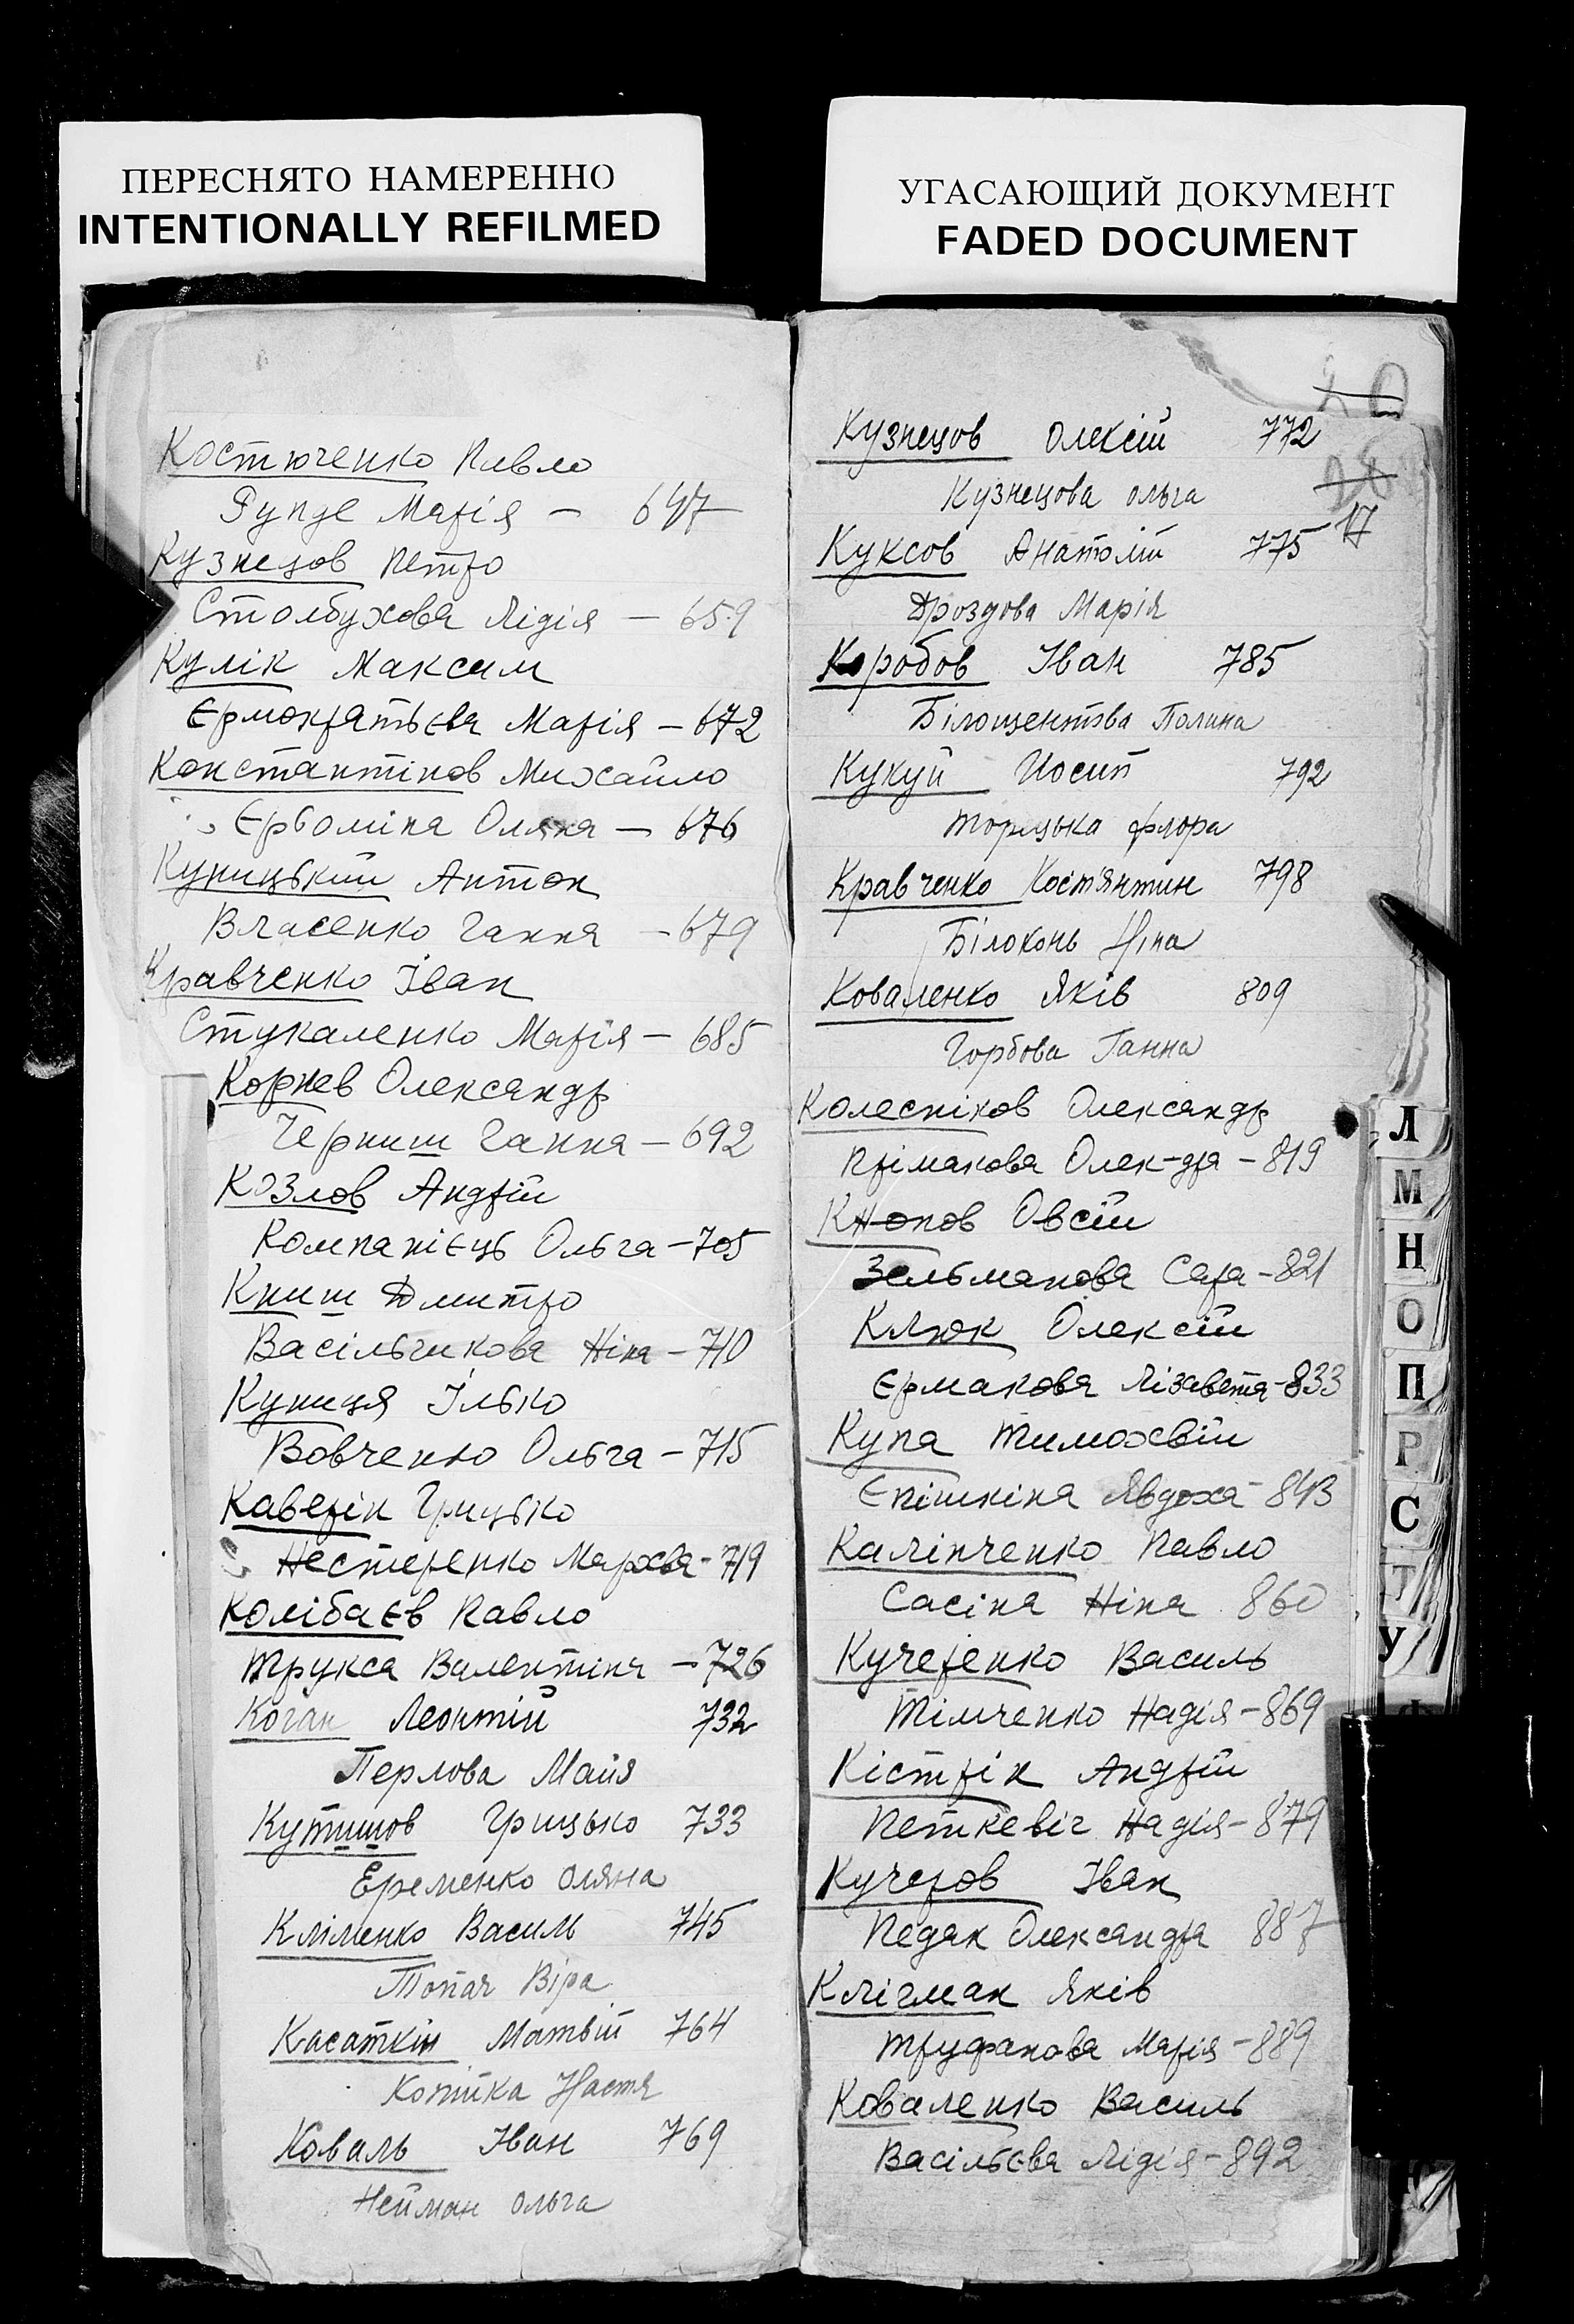 ПЕРЕСНЯТО НАМЕРЕННО
INTENTIONALLY REFILMED
УГАСАЮЩИЙ ДОКУМЕНТ
FADED DOCUMENT
Костюченко Павло
Рунде Марія – 647
Кузнецов Петро
Столбухова Лідія – 659
Кулік Максим
Єрмократьєва Марія – 672
Константінов Михайло
Єрьоміна Оляна – 676
Куницький Антон
Власенко Ганна – 679
Кравченко Іван
Стукаленко Марія – 685
Корнев Олександр
Черниш Ганна – 692
Козлов Андрій
Компанієць Ольга – 705
Книш Дмитро
Васільчикова Ніна – 710
Куниця Ілько
Вовченко Ольга – 715
Каверін Грицько
Нестеренко Марфва – 719
Колібаєв Павло
Трукса Валентіна – 726
Коган Леонтій 732
Перлова Майя
Кутишов Грицько 733
Еременко Оляна
Кліменко Василь 745
Топач Віра
Касаткін Матвій 764
Копійка Настя
Коваль Іван 769
Нейман Ольга
20
Кузнецов Олексій 772
Кузнецова Ольга
17
Куксов Анатолій 775
Дроздова Марія
Коробов Іван 785
Білоцентова Полина
Кукуй Йосип 792
Торицька Флора
Кравченко Костянтин 798
Білоконь Ніна
Коваленко Яків 809
Горбова Ганна
Колесніков Олександр
Прімакова Олек-дра – 819
Кнопов Овсій
Зельманова Сара – 821
Клюк Олексій
Єрмакова Лізавета – 833
Купа Тимохвій
Єпішкіна Явдоха – 843
Калінченко Павло
Сасіна Ніна 860
Кучеренко Василь
Тімченко Надія – 869
Кістрік Андрій
Петкевіч Надія – 879
Кучеров Іван
Педак Олександра 887
Клігман Яків
Труфанова Марія – 889
Коваленко Василь
Васільєва Лідія – 892
Л
М
Н
О
П
Р
С
Т
У